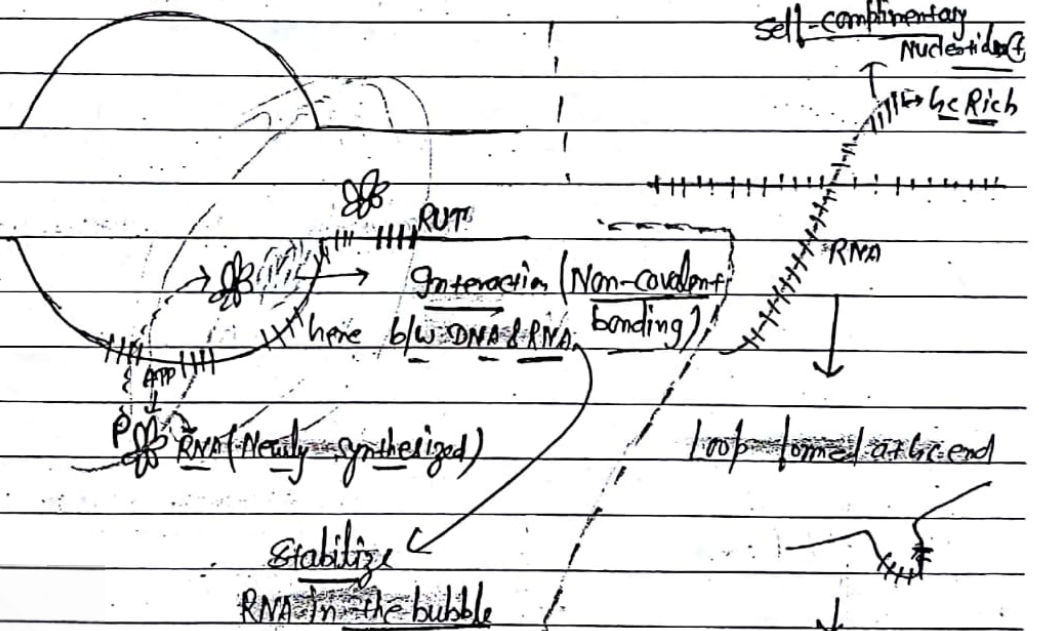 Self-complimentary
Nucleotides
Gc Rich
RUT
RNA
Interaction (Non-covalent
bonding)
here b/w DNA & RNA
ATP
P
RNA (Newly synthesized)
loop formed at Gc end
Stabilize
RNA in the bubble